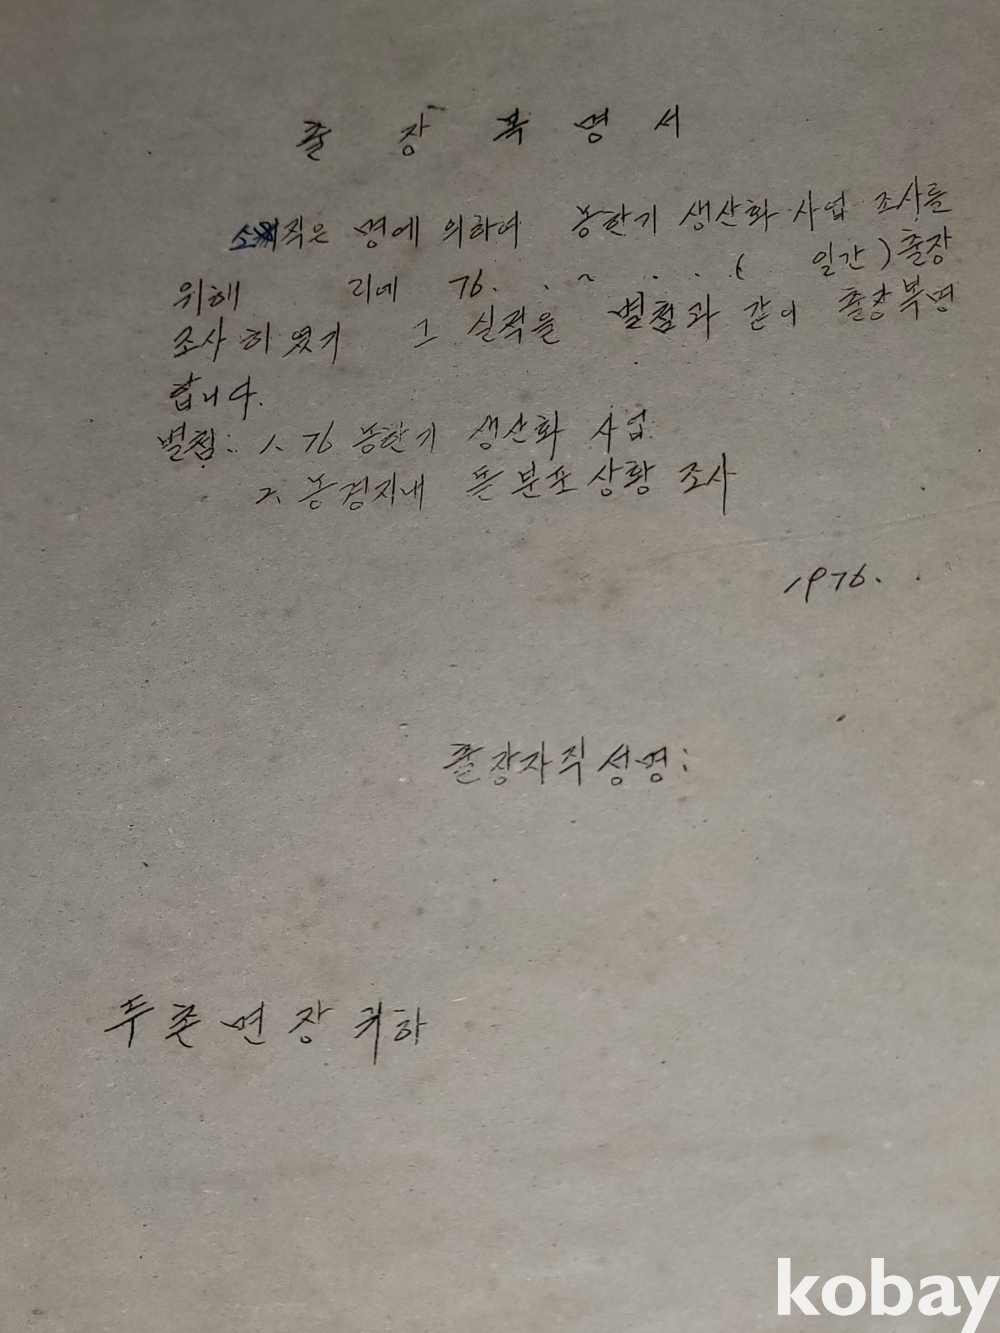 출장복명서
소직은 명에 의하여 농한기 생산화 사업 조사를
위해 리에 76. . ~ . . ( 일간) 출장
조사하였기 그 실적을 별첨과 같이 출장복명
합니다.
별첨: 1. 76 농한기 생산화 사업
2. 농경지내 뜬 분포 상황 조사
1976. .
출장자직성명:
두촌면장귀하
kobay